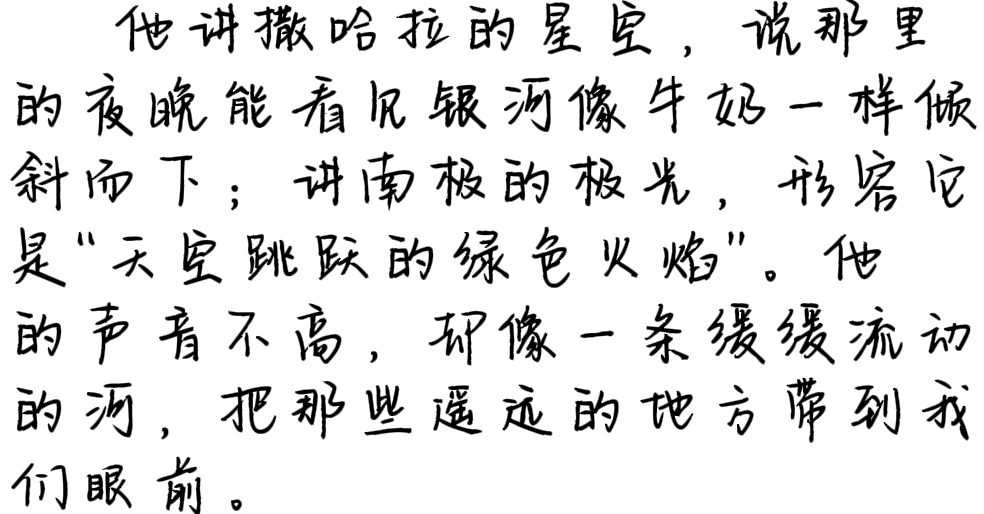 他讲撒哈拉的星空，说那里
的夜晚能看见银河像牛奶一样倾
斜而下；讲南极的极光，形容它
是“天空跳跃的绿色火焰”。他
的声音不高，却像一条缓缓流动
的河，把那些遥远的地方带到我
们眼前。